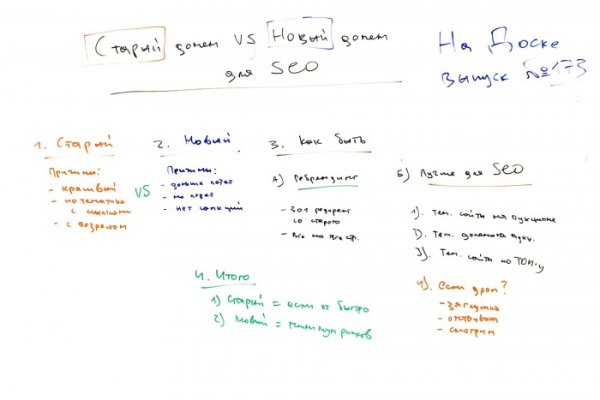 Старый домен VS Новый домен
для SEO
На Доске
выпуск №173
1. Старый
Причины:
- красивый
- по тематике
с ссылками
- с возрастом
VS
2. Новый
Причины:
- дольше
- не
- нет санкций
3. Как быть
А) Ребрендинг
- 301 редирект
со старого
- Все на все стр.
Б) Лучше для SEO
1). Тем. сайты на аукционе
2). Тем. домены аукц.
3). Тем. сайты по ТОП-у
4). если дроп?
- загрузка
- отстоять
- смотрим
4. Итого
1) Старый = если оч быстро
2) Новый = минимум рисков